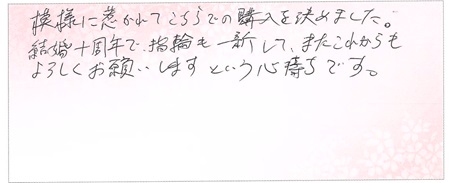 模様に惹かれてこちらでの購入を決めました。
結婚十周年で、指輪も一新して、またこれからも
よろしくお願いしますという心持ちです。